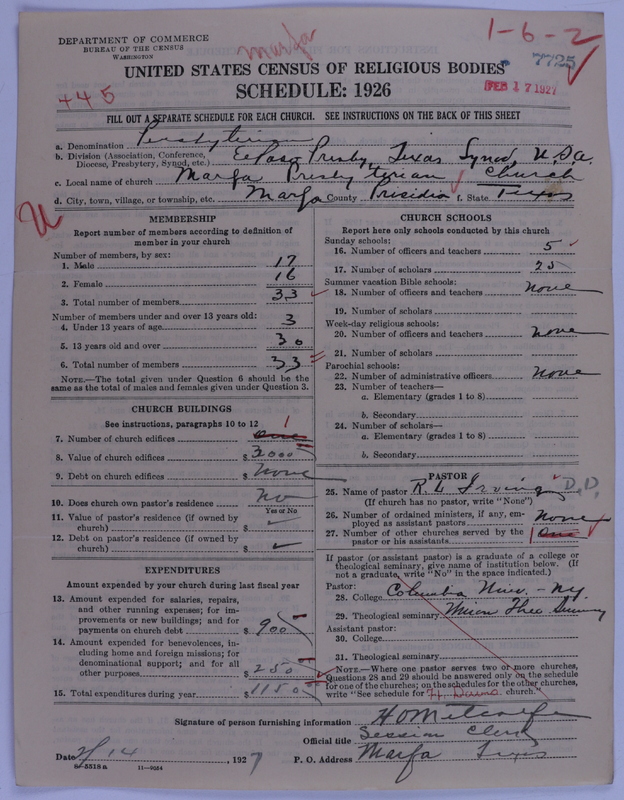 1-6-2
Marfa
7725
DEPARTMENT OF COMMERCE
BUREAU OF THE CENSUS
WASHINGTON
UNITED STATES CENSUS OF RELIGIOUS BODIES
FEB 17 1927
SCHEDULE: 1926
+45
FILL OUT A SEPARATE SCHEDULE FOR EACH CHURCH. SEE INSTRUCTIONS ON THE BACK OF THIS SHEET
a. Denomination Presbyterian
b. Division (Association, Conference, Diocese, Presbytery, Synod, etc.) El Paso Presby, Texas Synod, U.S.A.
c. Local name of church Marfa Presbyterian Church
d. City, town, village, or township, etc. Marfa County Presidio f. State Texas
U
MEMBERSHIP
Report number of members according to definition of
member in your church
Number of members, by sex:
1. Male 17
2. Female 16
3. Total number of members 33
Number of members under and over 13 years old:
4. Under 13 years of age 3
5. 13 years old and over 30
6. Total number of members 33
NOTE.—The total given under Question 6 should be the
same as the total of males and females given under Question 3.
CHURCH BUILDINGS
See instructions, paragraphs 10 to 12
7. Number of church edifices one 1
8. Value of church edifices $ 3000
9. Debt on church edifices $ None
10. Does church own pastor's residence No
Yes or No
11. Value of pastor's residence (if owned by
church) $
12. Debt on pastor's residence (if owned by
church) $
EXPENDITURES
Amount expended by your church during last fiscal year
13. Amount expended for salaries, repairs,
and other running expenses; for im-
provements or new buildings; and for
payments on church debt $ 900
14. Amount expended for benevolences, in-
cluding home and foreign missions; for
denominational support; and for all
other purposes $ 250
15. Total expenditures during year $ 1150
CHURCH SCHOOLS
Report here only schools conducted by this church
Sunday schools:
16. Number of officers and teachers 5
17. Number of scholars 25
Summer vacation Bible schools:
18. Number of officers and teachers none
19. Number of scholars
Week-day religious schools:
20. Number of officers and teachers none
21. Number of scholars
Parochial schools:
22. Number of administrative officers none
23. Number of teachers—
a. Elementary (grades 1 to 8)
b. Secondary
24. Number of scholars—
a. Elementary (grades 1 to 8)
b. Secondary
PASTOR
25. Name of pastor R. L. Irving D.D.
(If church has no pastor, write "None")
26. Number of ordained ministers, if any, em-
ployed as assistant pastors none
27. Number of other churches served by the
pastor or his assistants 1 one
If pastor (or assistant pastor) is a graduate of a college or
theological seminary, give name of institution below. (If
not a graduate, write "No" in the space indicated.)
Pastor:
28. College Columbia Univ. - N.Y.
29. Theological seminary Union Theo Seminary
Assistant pastor:
30. College
31. Theological seminary
NOTE.—Where one pastor serves two or more churches,
Questions 28 and 29 should be answered only on the schedule
for one of the churches; on the schedules for the other churches,
write "See schedule for Ft. Davis church."
Signature of person furnishing information H O Metcalfe
Official title Session Clerk
Date 2/14, 1927 P. O. Address Marfa Texas
8-5518a 11-9664